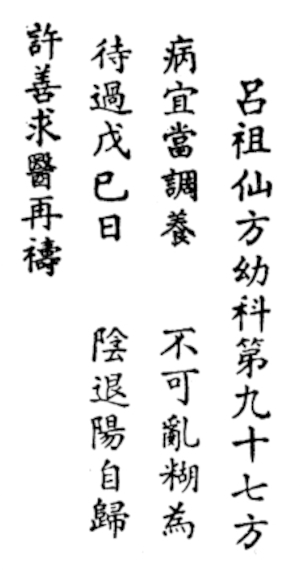 呂祖仙方幼科第九十七方
病宜當調養　不可亂糊為
待過戊巳日　陰退陽自歸
許善求醫再禱